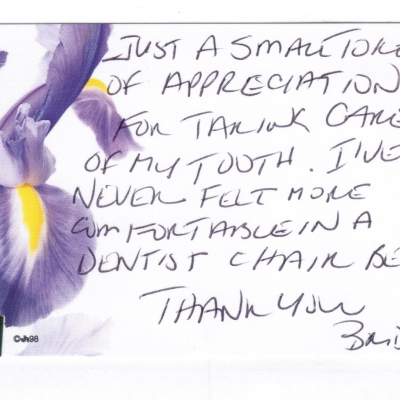 JUST A SMALL TOKE
OF APPRECIATION
FOR TAKING CARE
OF MY TOOTH. I'VE
NEVER FELT MORE
COMFORTABLE IN A
DENTIST CHAIR BE
THANK YOU
BRI
©JR98